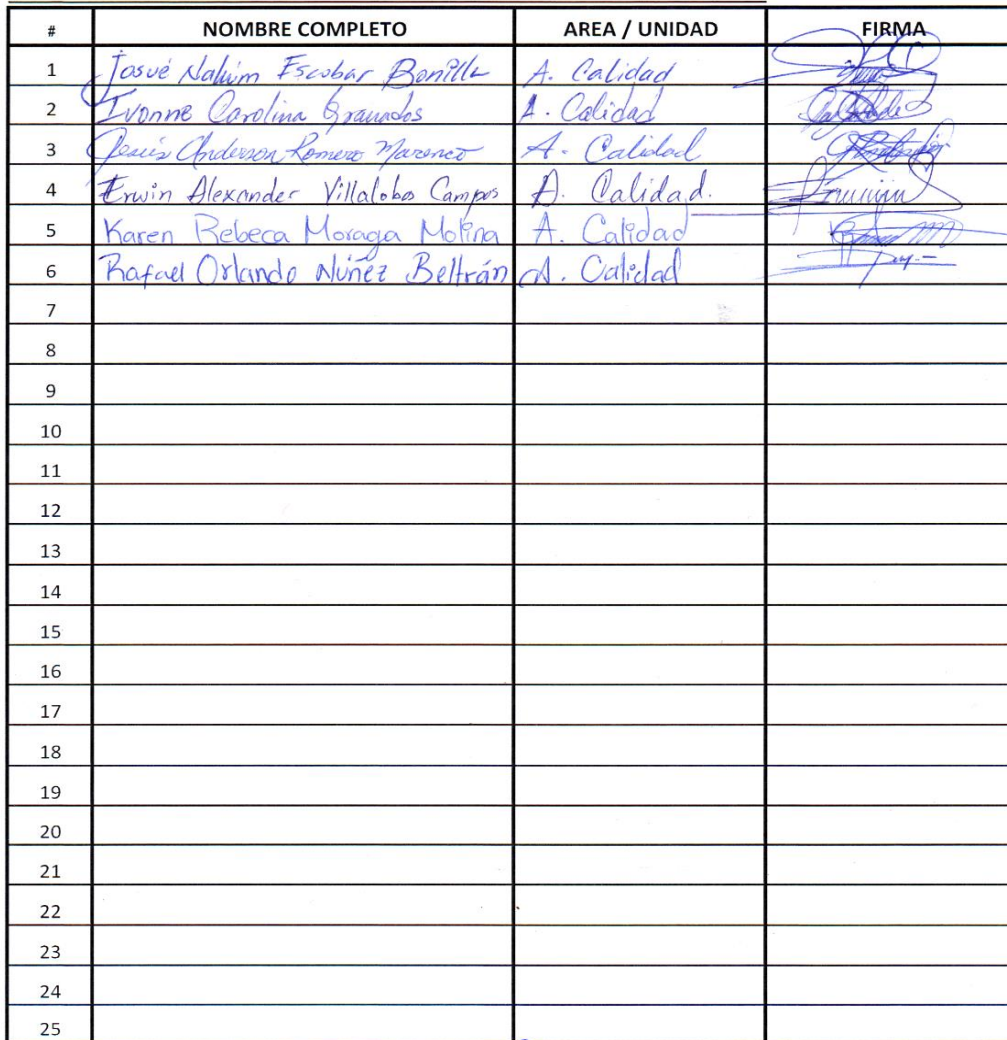 # NOMBRE COMPLETO AREA / UNIDAD FIRMA
1 Josué Nahúm Escobar Bonilla A. Calidad
2 Ivonne Carolina Granados A. Calidad
3 Jesús Anderson Romero Marenco A. Calidad
4 Erwin Alexander Villalobos Campos A. Calidad.
5 Karen Rebeca Moraga Molina A. Calidad
6 Rafael Orlando Núñez Beltrán A. Calidad
7
8
9
10
11
12
13
14
15
16
17
18
19
20
21
22
23
24
25